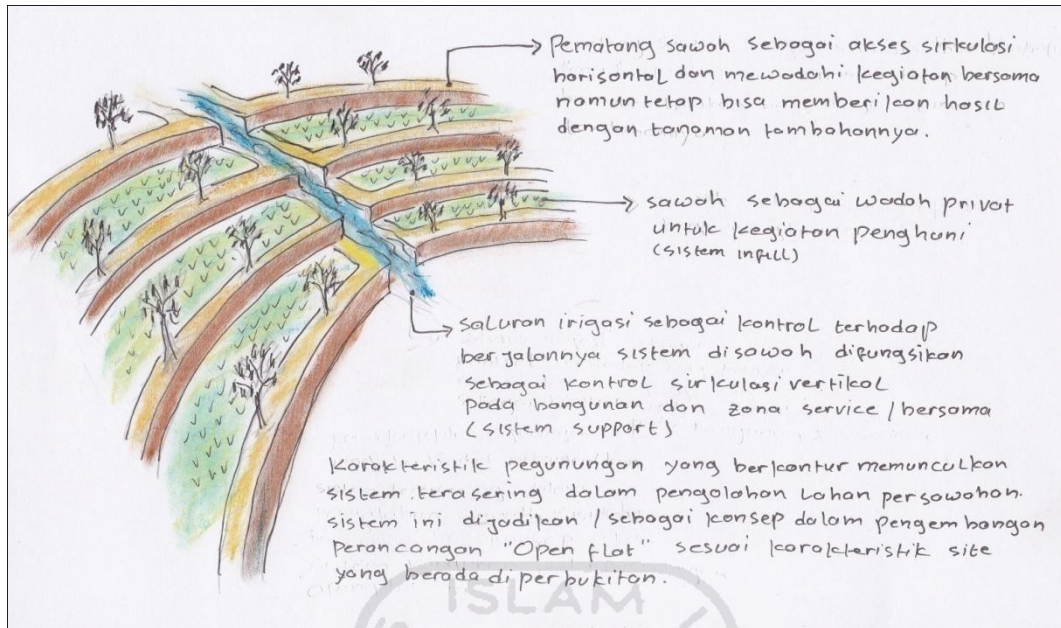 Pematang sawah sebagai akses sirkulasi
horisontal dan mewadahi kegiatan bersama
namun tetap bisa memberikan hasil
dengan tanaman tambahannya.
sawah sebagai wadah privat
untuk kegiatan penghuni
(sistem infill)
saluran irigasi sebagai kontrol terhadap
berjalannya sistem disawah difungsikan
sebagai kontrol sirkulasi vertikal
pada bangunan dan zona service / bersama
(sistem support)
Karakteristik pegunungan yang berkontur memunculkan
sistem terasering dalam pengolahan lahan persawahan.
sistem ini dijadikan / sebagai konsep dalam pengembangan
perancangan "Open flat" sesuai karakteristik site
yang berada diperbukitan.
ISLAM